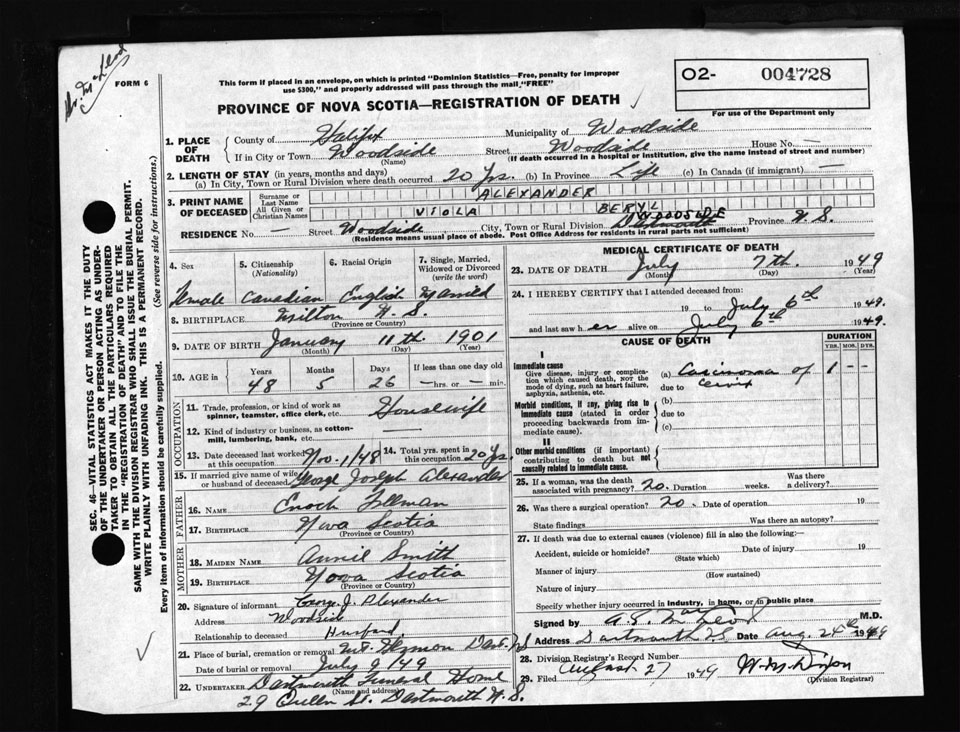 Dr. McLeod
FORM 6
This form if placed in an envelope, on which is printed "Dominion Statistics—Free, penalty for improper
use $300," and properly addressed will pass through the mail "FREE"
O2- 004728
For use of the Department only
PROVINCE OF NOVA SCOTIA—REGISTRATION OF DEATH
1. PLACE OF DEATH
County of Halifax Municipality of Woodside
If in City or Town Woodside Street Woodside House No.
(Name) (If death occurred in a hospital or institution, give the name instead of street and number)
2. LENGTH OF STAY (in years, months and days)
(a) In City, Town or Rural Division where death occurred 20 Yrs. (b) In Province Life (c) In Canada (if immigrant)
3. PRINT NAME OF DECEASED
Surname or Last Name ALEXANDER
All Given or Christian Names VIOLA BERYL
WOODSIDE
RESIDENCE No. — Street Woodside City, Town or Rural Division Dartmouth Province N.S.
(Residence means usual place of abode. Post Office Address for residents in rural parts not sufficient)
SEC. 46—VITAL STATISTICS ACT MAKES IT THE DUTY
OF THE UNDERTAKER OR PERSON ACTING AS UNDER-
TAKER TO OBTAIN ALL THE PARTICULARS REQUIRED
IN THE "REGISTRATION OF DEATH" AND TO FILE THE
SAME WITH THE DIVISION REGISTRAR WHO SHALL ISSUE THE BURIAL PERMIT.
WRITE PLAINLY WITH UNFADING INK. THIS IS A PERMANENT RECORD.
Every item of information should be carefully supplied. (See reverse side for instructions.)
4. Sex 5. Citizenship (Nationality) 6. Racial Origin 7. Single, Married, Widowed or Divorced (write the word)
Female Canadian English Married
8. BIRTHPLACE Milton N.S.
(Province or Country)
9. DATE OF BIRTH January 11th 1901
(Month) (Day) (Year)
10. AGE in Years Months Days If less than one day old
48 5 26 —hrs. or —min.
OCCUPATION
11. Trade, profession, or kind of work as spinner, teamster, office clerk, etc. Housewife
12. Kind of industry or business, as cotton-mill, lumbering, bank, etc. —
13. Date deceased last worked at this occupation Nov. 1/48 14. Total yrs. spent in this occupation 20 Yrs.
15. If married give name of wife or husband of deceased George Joseph Alexander
FATHER
16. Name Enoch
17. BIRTHPLACE Nova Scotia
(Province or Country)
MOTHER
18. MAIDEN NAME Annie Smith
19. BIRTHPLACE Nova Scotia
(Province or Country)
20. Signature of informant George J. Alexander
Address Woodside
Relationship to deceased Husband
21. Place of burial, cremation or removal Mt. Hermon Dart. N.S
Date of burial or removal July 9/49
22. UNDERTAKER Dartmouth Funeral Home
(Name and address)
29 Queen St. Dartmouth N.S.
MEDICAL CERTIFICATE OF DEATH
23. DATE OF DEATH July 7th. 1949
(Month) (Day) (Year)
24. I HEREBY CERTIFY that I attended deceased from:
19 to July 6th 1949.
and last saw her alive on July 6th 1949.
CAUSE OF DEATH DURATION
YRS. MOS. DYS.
I
Immediate cause
Give disease, injury or complication which caused death, not the mode of dying, such as heart failure, asphyxia, asthenia, etc.
(a) Carcinoma of 1 — —
due to Cervix
Morbid conditions, if any, giving rise to immediate cause (stated in order proceeding backwards from immediate cause).
(b)
due to
(c)
II
Other morbid conditions (if important) contributing to death but not causally related to immediate cause.
25. If a woman, was the death associated with pregnancy? no. Duration weeks. Was there a delivery?
26. Was there a surgical operation? no. Date of operation 19
State findings Was there an autopsy?
27. If death was due to external causes (violence) fill in also the following:—
Accident, suicide or homicide? Date of injury 19
(State which)
Manner of injury
(How sustained)
Nature of injury
Specify whether injury occurred in industry, in home, or in public place
Signed by A.E. MacLeod M.D.
Address Dartmouth N.S. Date Aug. 24th 1949
28. Division Registrar's Record Number
29. Filed August 27 1949 W.M. Dixon
(Division Registrar)